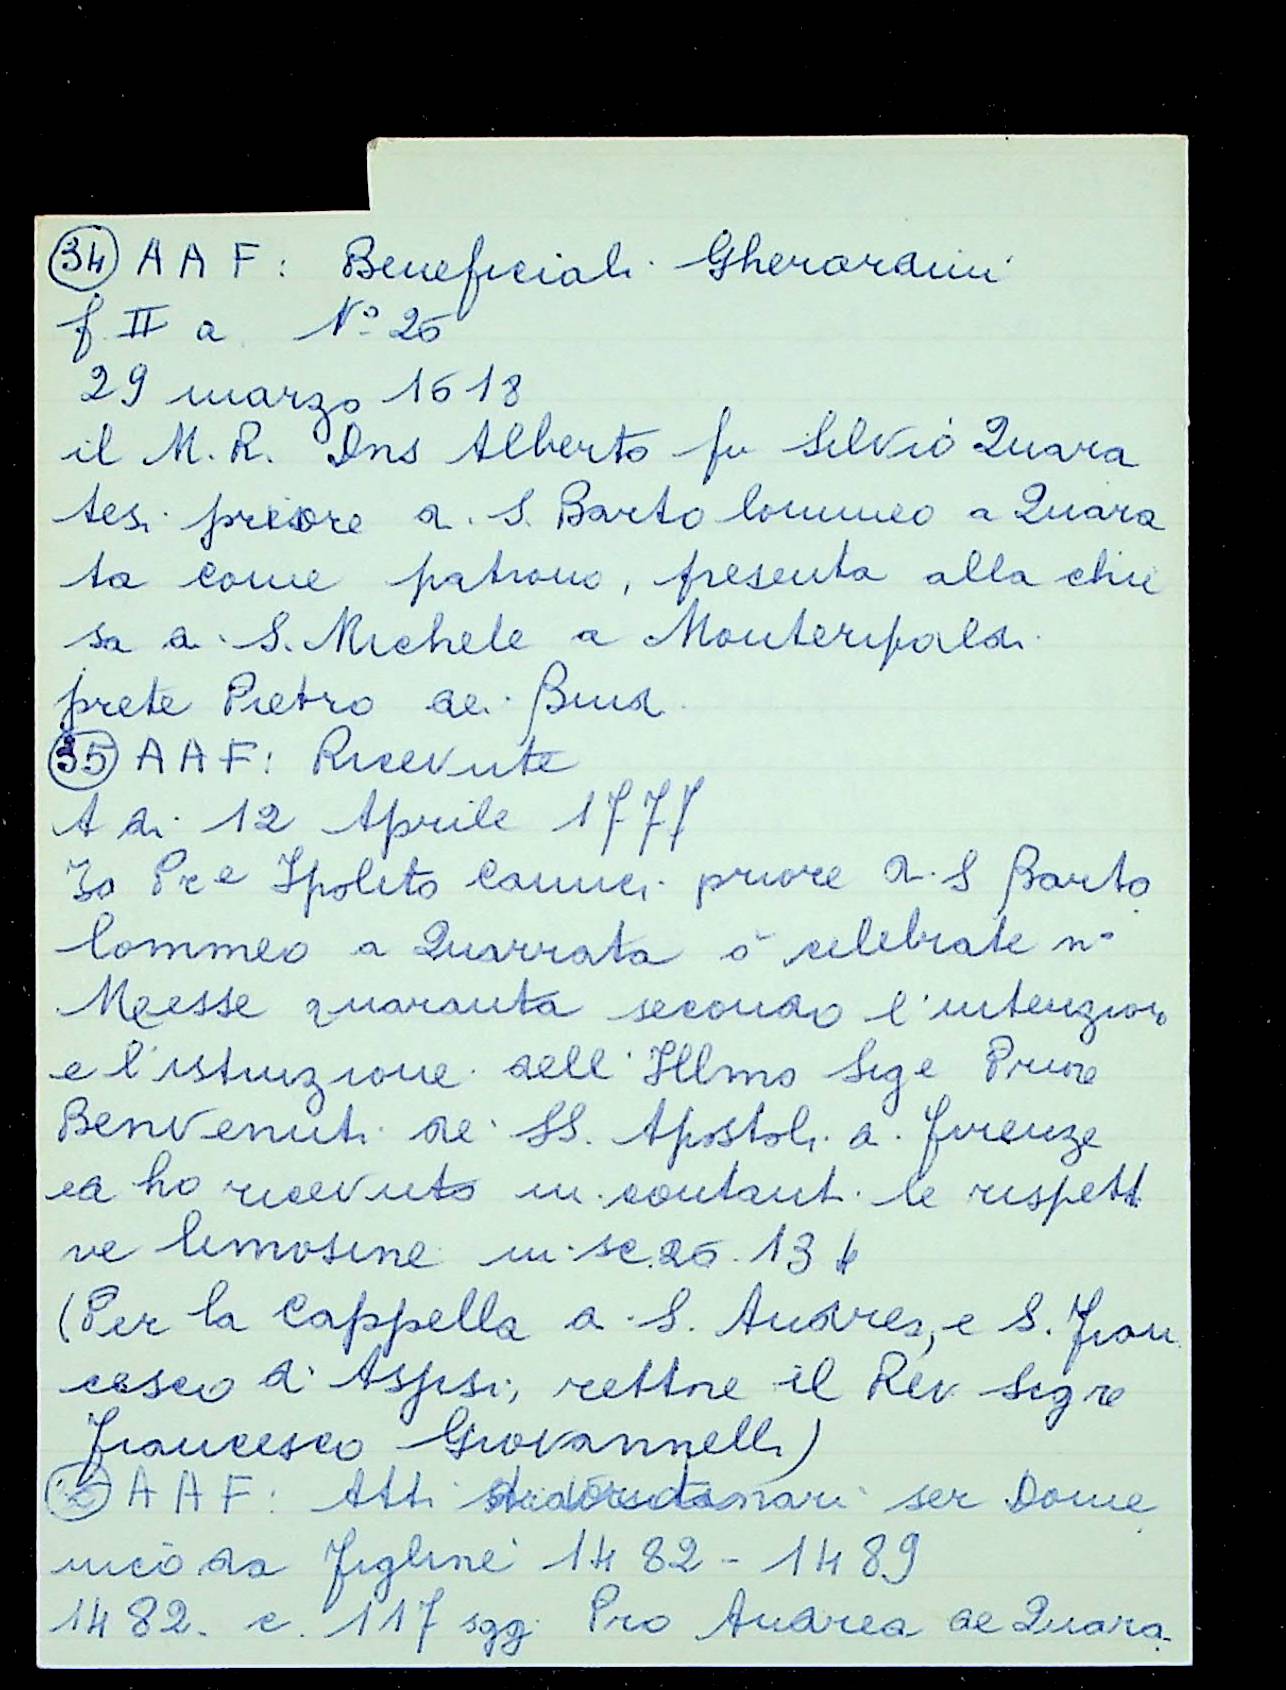 34 A A F: Beneficiali Gherardini
f. II a N° 26
29 marzo 1618
il M. R. Dns Alberto fu Silvio Quara
tesi priore di S. Bartolommeo a Quara
ta come patrono, presenta alla chie
sa di S. Michele a Monteripaldi
prete Pietro dei
35 A A F: Ricevute
A di 12 Aprile 1777
Io Pre Ipolito Cannci priore di S Barto
lommeo a Quarrata ò celebrate n°
Messe quaranta secondo l'intenzion
e l'istruzione dell'Illmo Sige Priore
Benvenuti de SS. Apostoli di Firenze
ed ho ricevuto in contanti le rispetti
ve limosine in sc. 26. 13 4
(Per la Cappella di S. Andrea, e S. Fran
cesco di Assisi, rettore il Rev Sigre
Francesco Giovannelli)
A A F: Atti ser Dome
nico da Figline 1482 - 1489
1482. c. 117 sgg. Pro Andrea de Quara